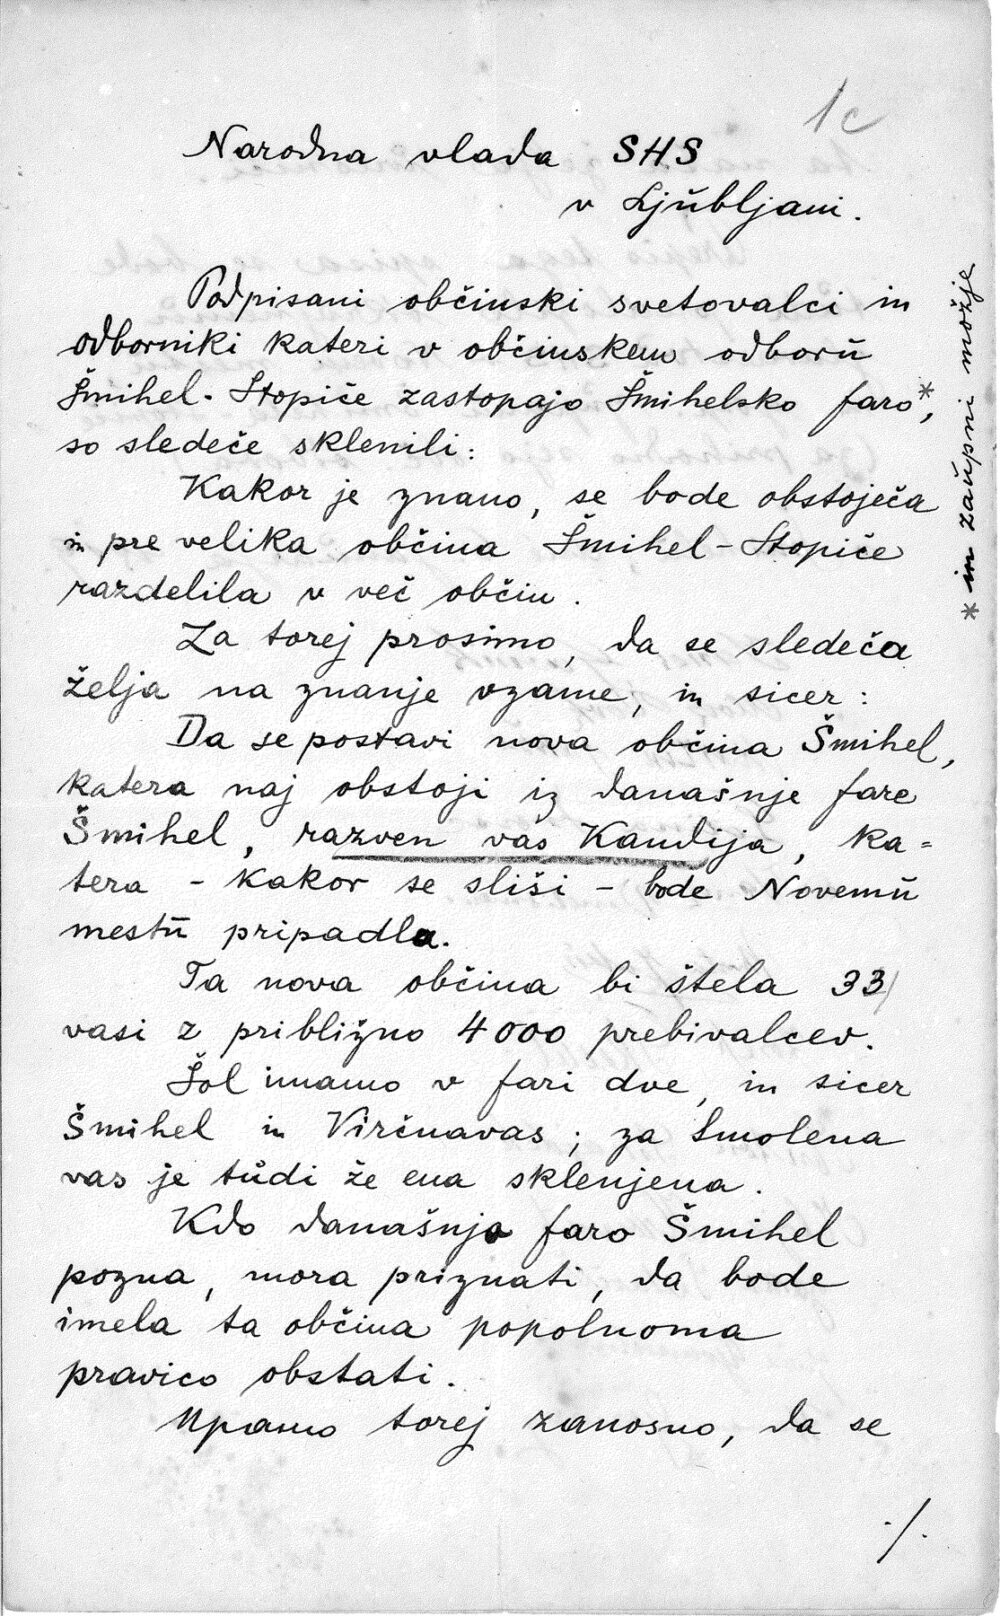 1c
Narodna vlada SHS
v Ljubljani.
Podpisani občinski svetovalci in
odborniki kateri v občinskem odboru
Šmihel-Stopiče zastopajo Šmihelsko faro*,
so sledeče sklenili:
* in zaupni možje
Kakor je znano, se bode obstoječa
in pre velika občina Šmihel-Stopiče
razdelila v več občin.
Za torej prosimo, da se sledeča
želja na znanje vzame, in sicer:
Da se postavi nova občina Šmihel,
katera naj obstoji iz današnje fare
Šmihel, razven vas Kandija, ka=
tera - kakor se sliši - bode Novemu
mestu pripadla.
Ta nova občina bi štela 33
vasi z približno 4000 prebivalcev.
Šol imamo v fari dve, in sicer
Šmihel in Virčnavas; za Smolena
vas je tudi že ena sklenjena.
Kdo današnjo faro Šmihel
pozna, mora priznati, da bode
imela ta občina popolnoma
pravico obstati.
Upamo torej zanosno, da se
./.